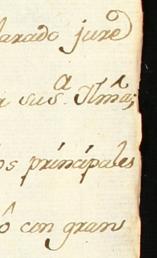 larado juré
su sᵃ. Ylmᵃ;
os principales
ô con gran